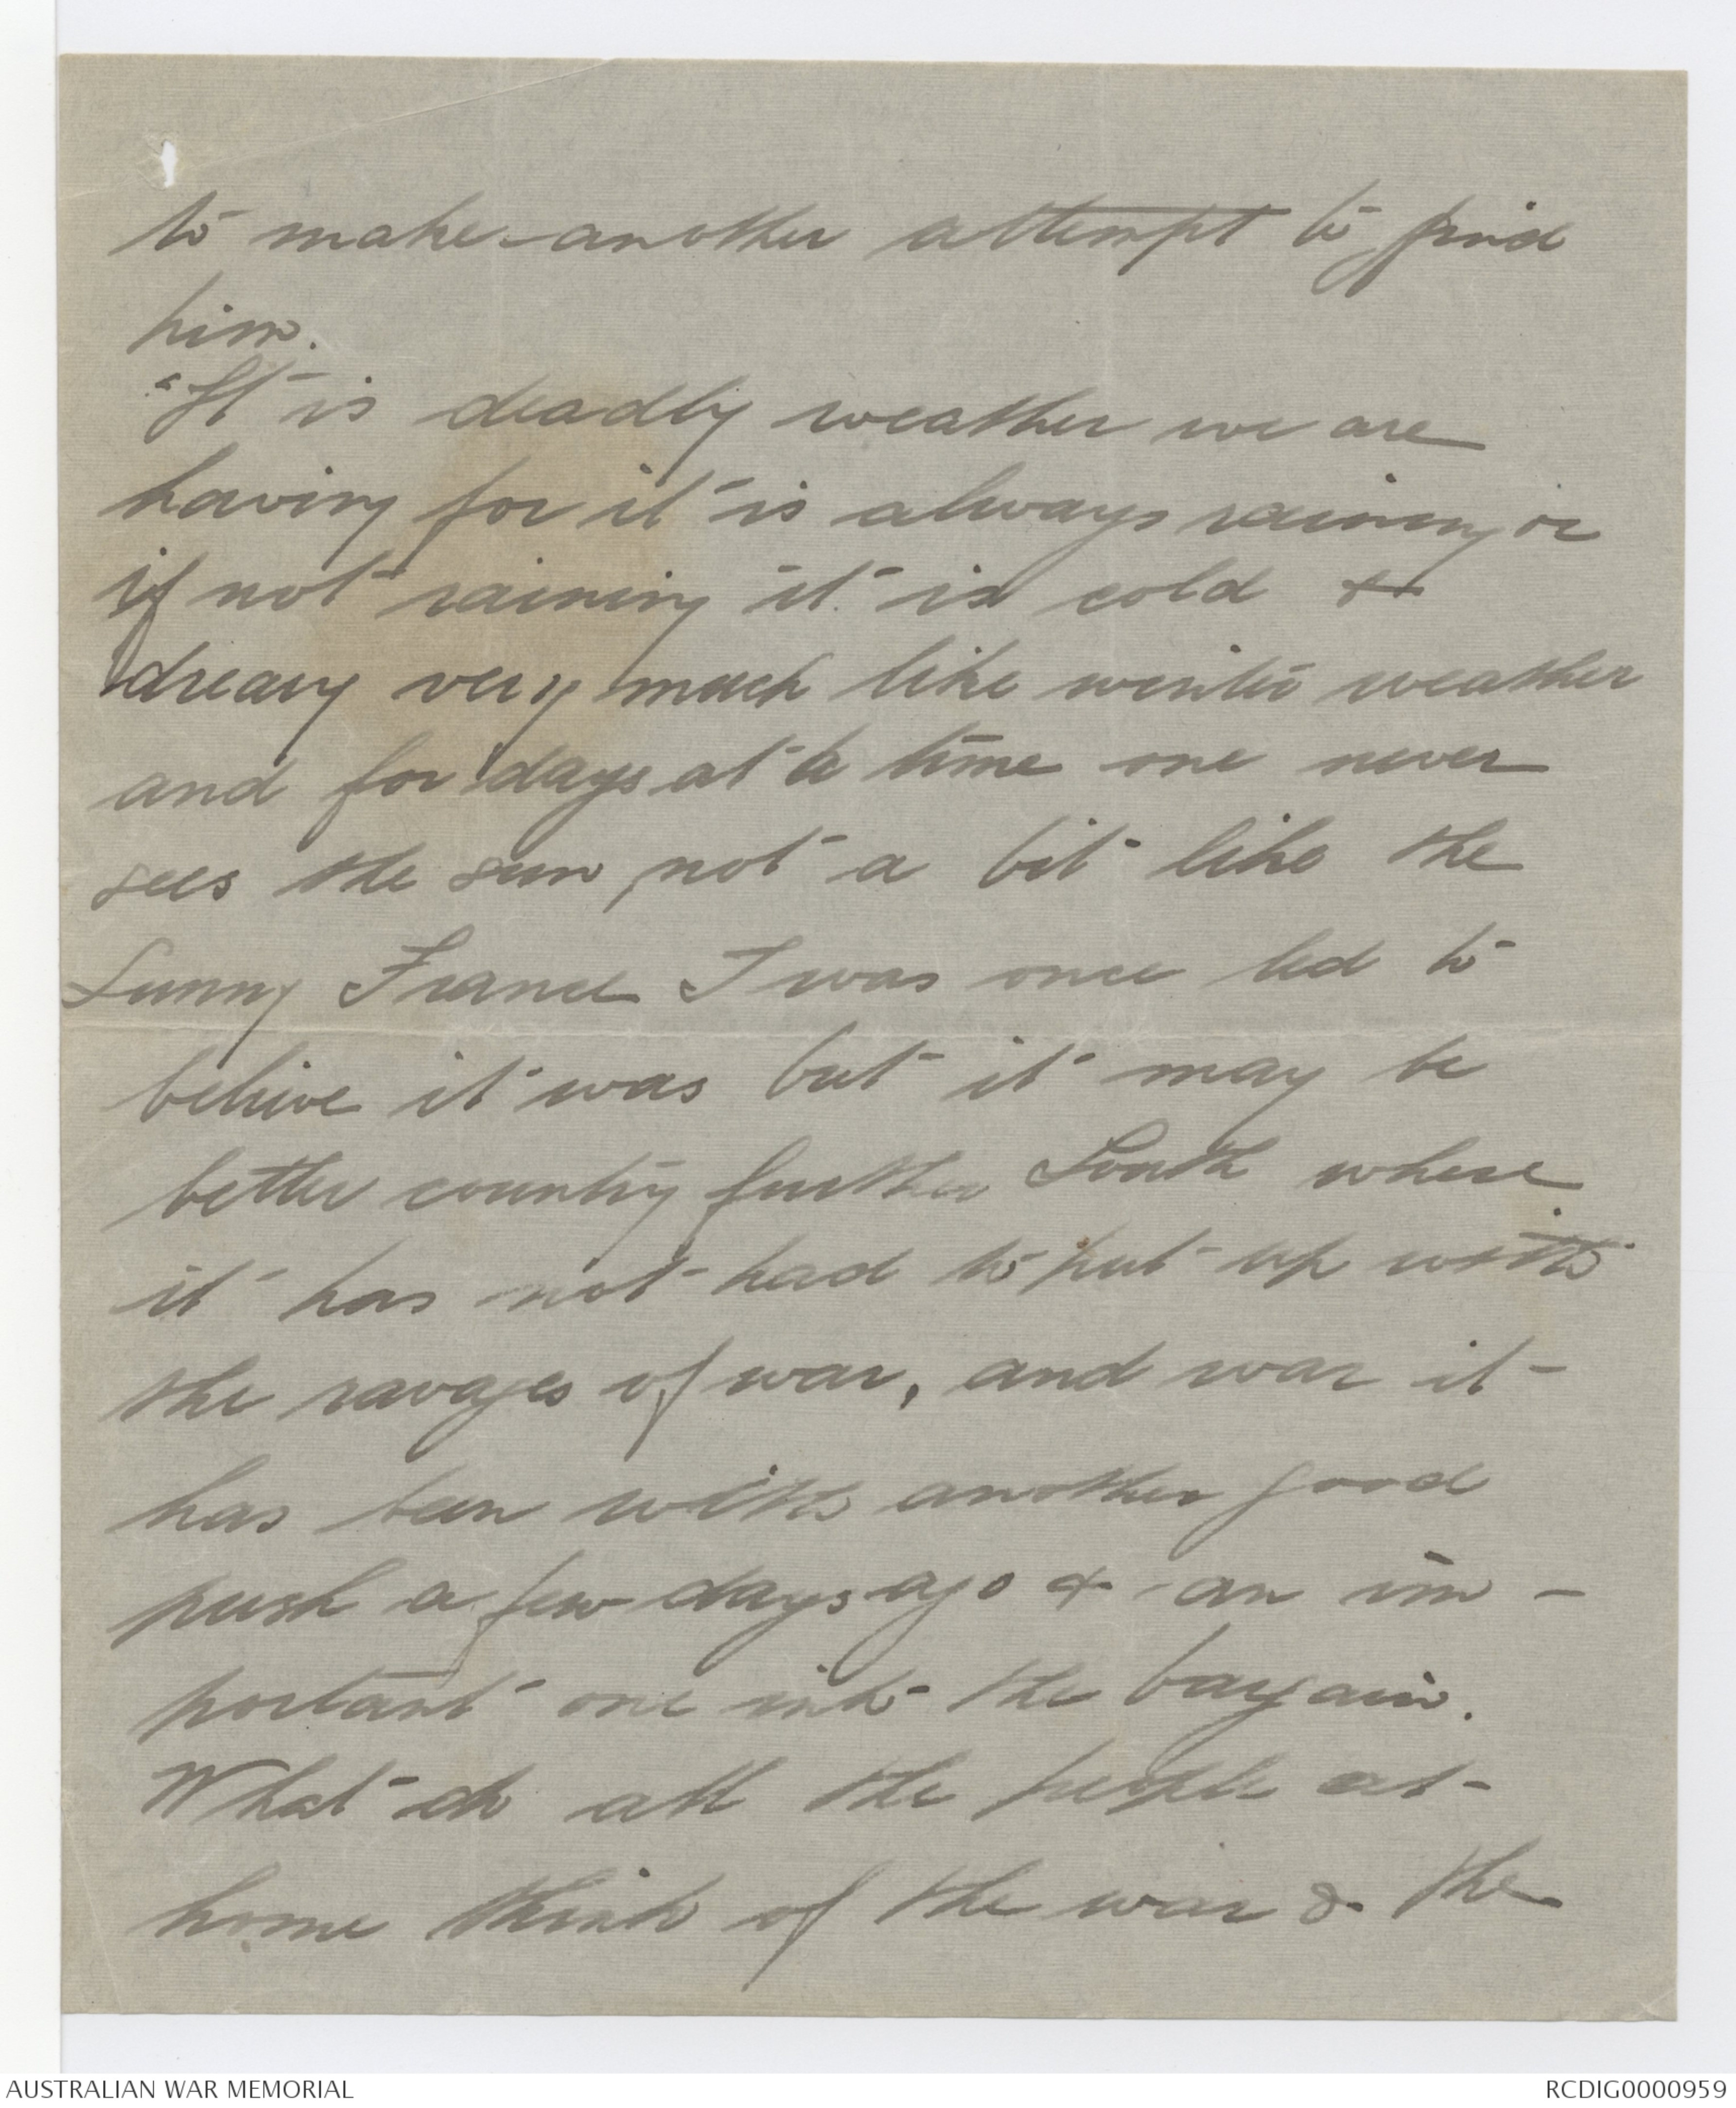 to make another attempt to find
him.
"It is deadly weather we are
having for it is always raining or
if not raining it is cold &
dreary very much like winter weather
and for days at a time one never
sees the sun, not a bit like the
Sunny France I was once led to
believe it was but it may be
better country further South where
it has not had to put up with
the ravages of war, and war it
has been with another good
push a few days ago & an im-
portant one into the bargain.
What do all the people at
home think of the war & the
AUSTRALIAN WAR MEMORIAL
RCDIG0000959